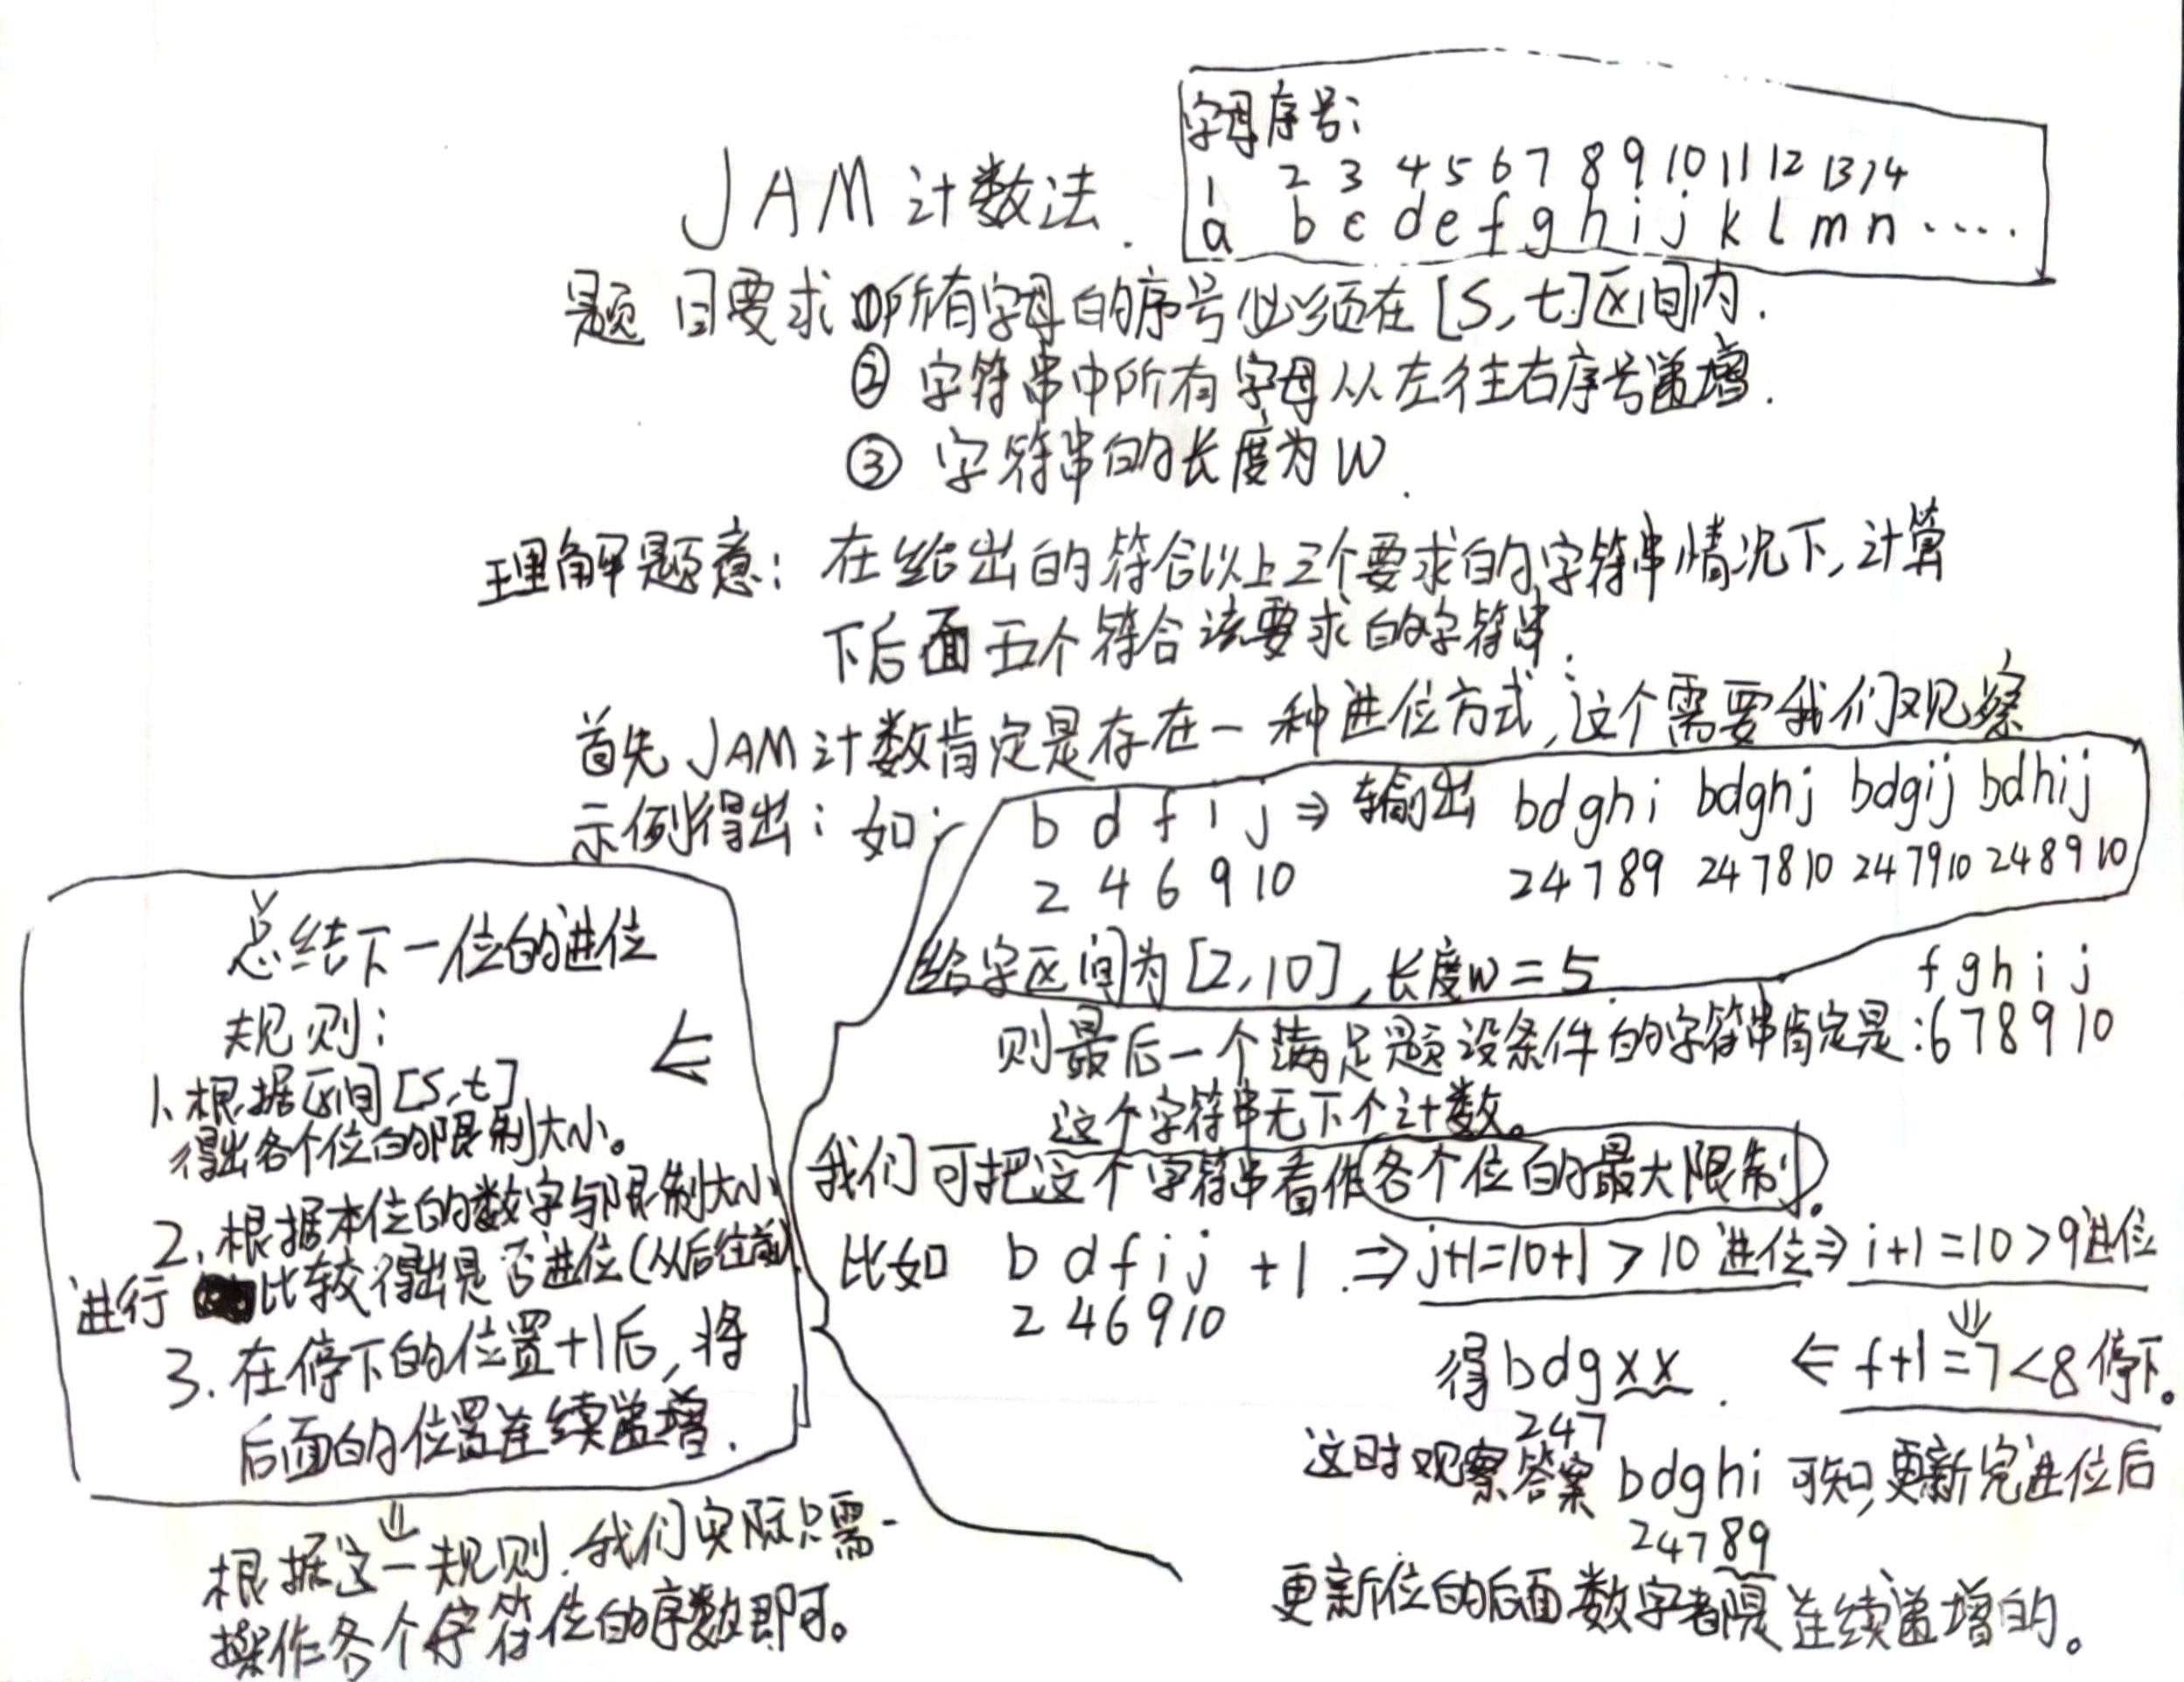 字母序号:
1 2 3 4 5 6 7 8 9 10 11 12 13 14
a b c d e f g h i j k l m n ....
JAM 计数法.
题目要求 ①所有字母的序号必须在[S,t]区间内.
② 字符串中所有字母从左往右序号递增.
③ 字符串的长度为W.
理解题意: 在给出的符合以上三个要求的字符串情况下,计算
下后面五个符合该要求的字符串.
首先 JAM 计数肯定是存在一种进位方式,这个需要我们观察
示例得出: 如:
b d f i j ⇒ 输出 bdghi bdghj bdgij bdhij
2 4 6 9 10 24789 247810 247910 248910
给字区间为[2,10],长度w=5.
f g h i j
则最后一个满足题设条件的字符串肯定是:6 7 8 9 10
这个字符串无下个计数。
我们可把这个字符串看作各个位的最大限制。
比如 b d f i j +1 ⇒ j+1=10+1>10 进位⇒ i+1=10>9进位
2 4 6 9 10
⇓
得bdgxx. ⇐ f+1=7<8停下。
247
这时观察答案 bdghi 可知,更新完进位后
24789
更新位的后面数字都是连续递增的。
总结下一位的进位
规则:
⇐
1、根据区间[S,t]
得出各个位的限制大小。
2、根据本位的数字与限制大小
进行比较得出是否进位(从后往前)
3. 在停下的位置+1后,将
后面的位置连续递增.
⇓
根据这一规则,我们实际只需
操作各个字符位的序数即可。